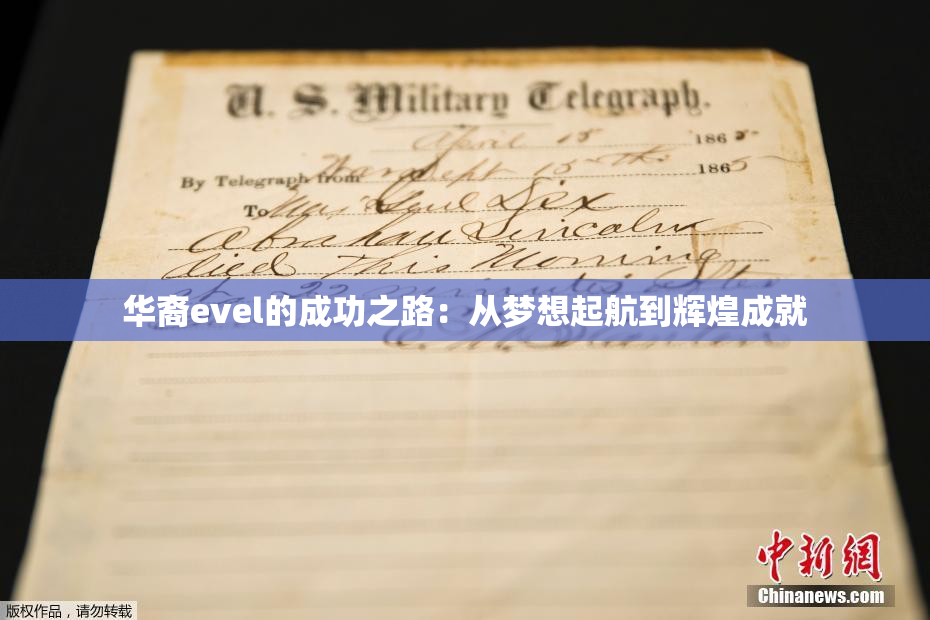 U. S. Military Telegraph.
April 15 1865
By Telegraph from War Dept 15th 1865
To Maj Genl Dix
Abraham Lincoln
died This Morning
at 22 minutes after
华裔evel的成功之路：从梦想起航到辉煌成就
E. M. Stanton
中新網
Chinanews.com
版权作品，请勿转载